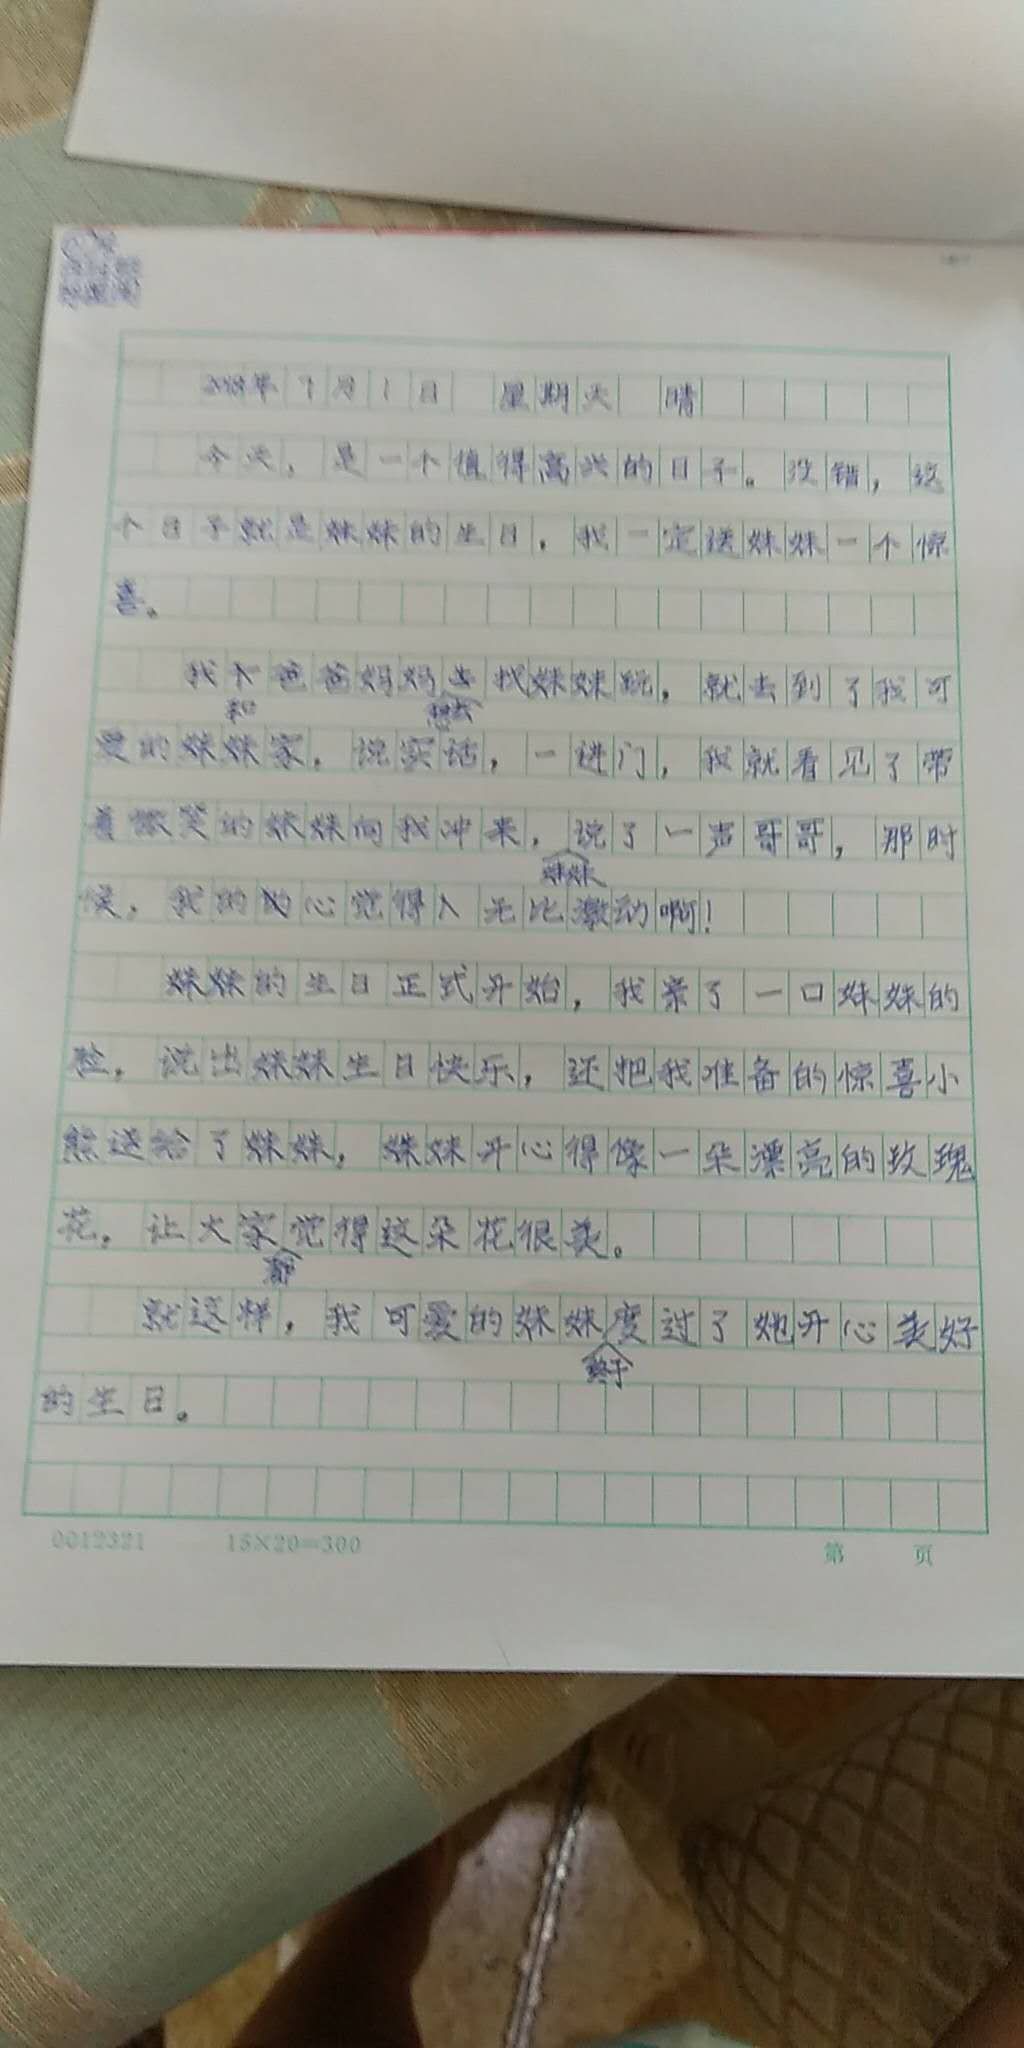 2018年7月1日 星期天 晴
今天，是一个值得高兴的日子。没错，这
个日子就是妹妹的生日，我一定送妹妹一个惊
喜。
我个爸爸妈妈去找妹妹玩，就去到了我可
和 想去
爱的妹妹家，说实话，一进门，我就看见了带
着微笑的妹妹向我冲来，说了一声哥哥，那时
妹妹
候，我的的心觉得入无比激动啊！
妹妹的生日正式开始，我亲了一口妹妹的
脸，说出妹妹生日快乐，还把我准备的惊喜小
熊送给了妹妹，妹妹开心得像一朵漂亮的玫瑰
花，让大家觉得这朵花很美。
都
就这样，我可爱的妹妹度过了她开心美好
终于
的生日。
0012321 15×20=300 第 页